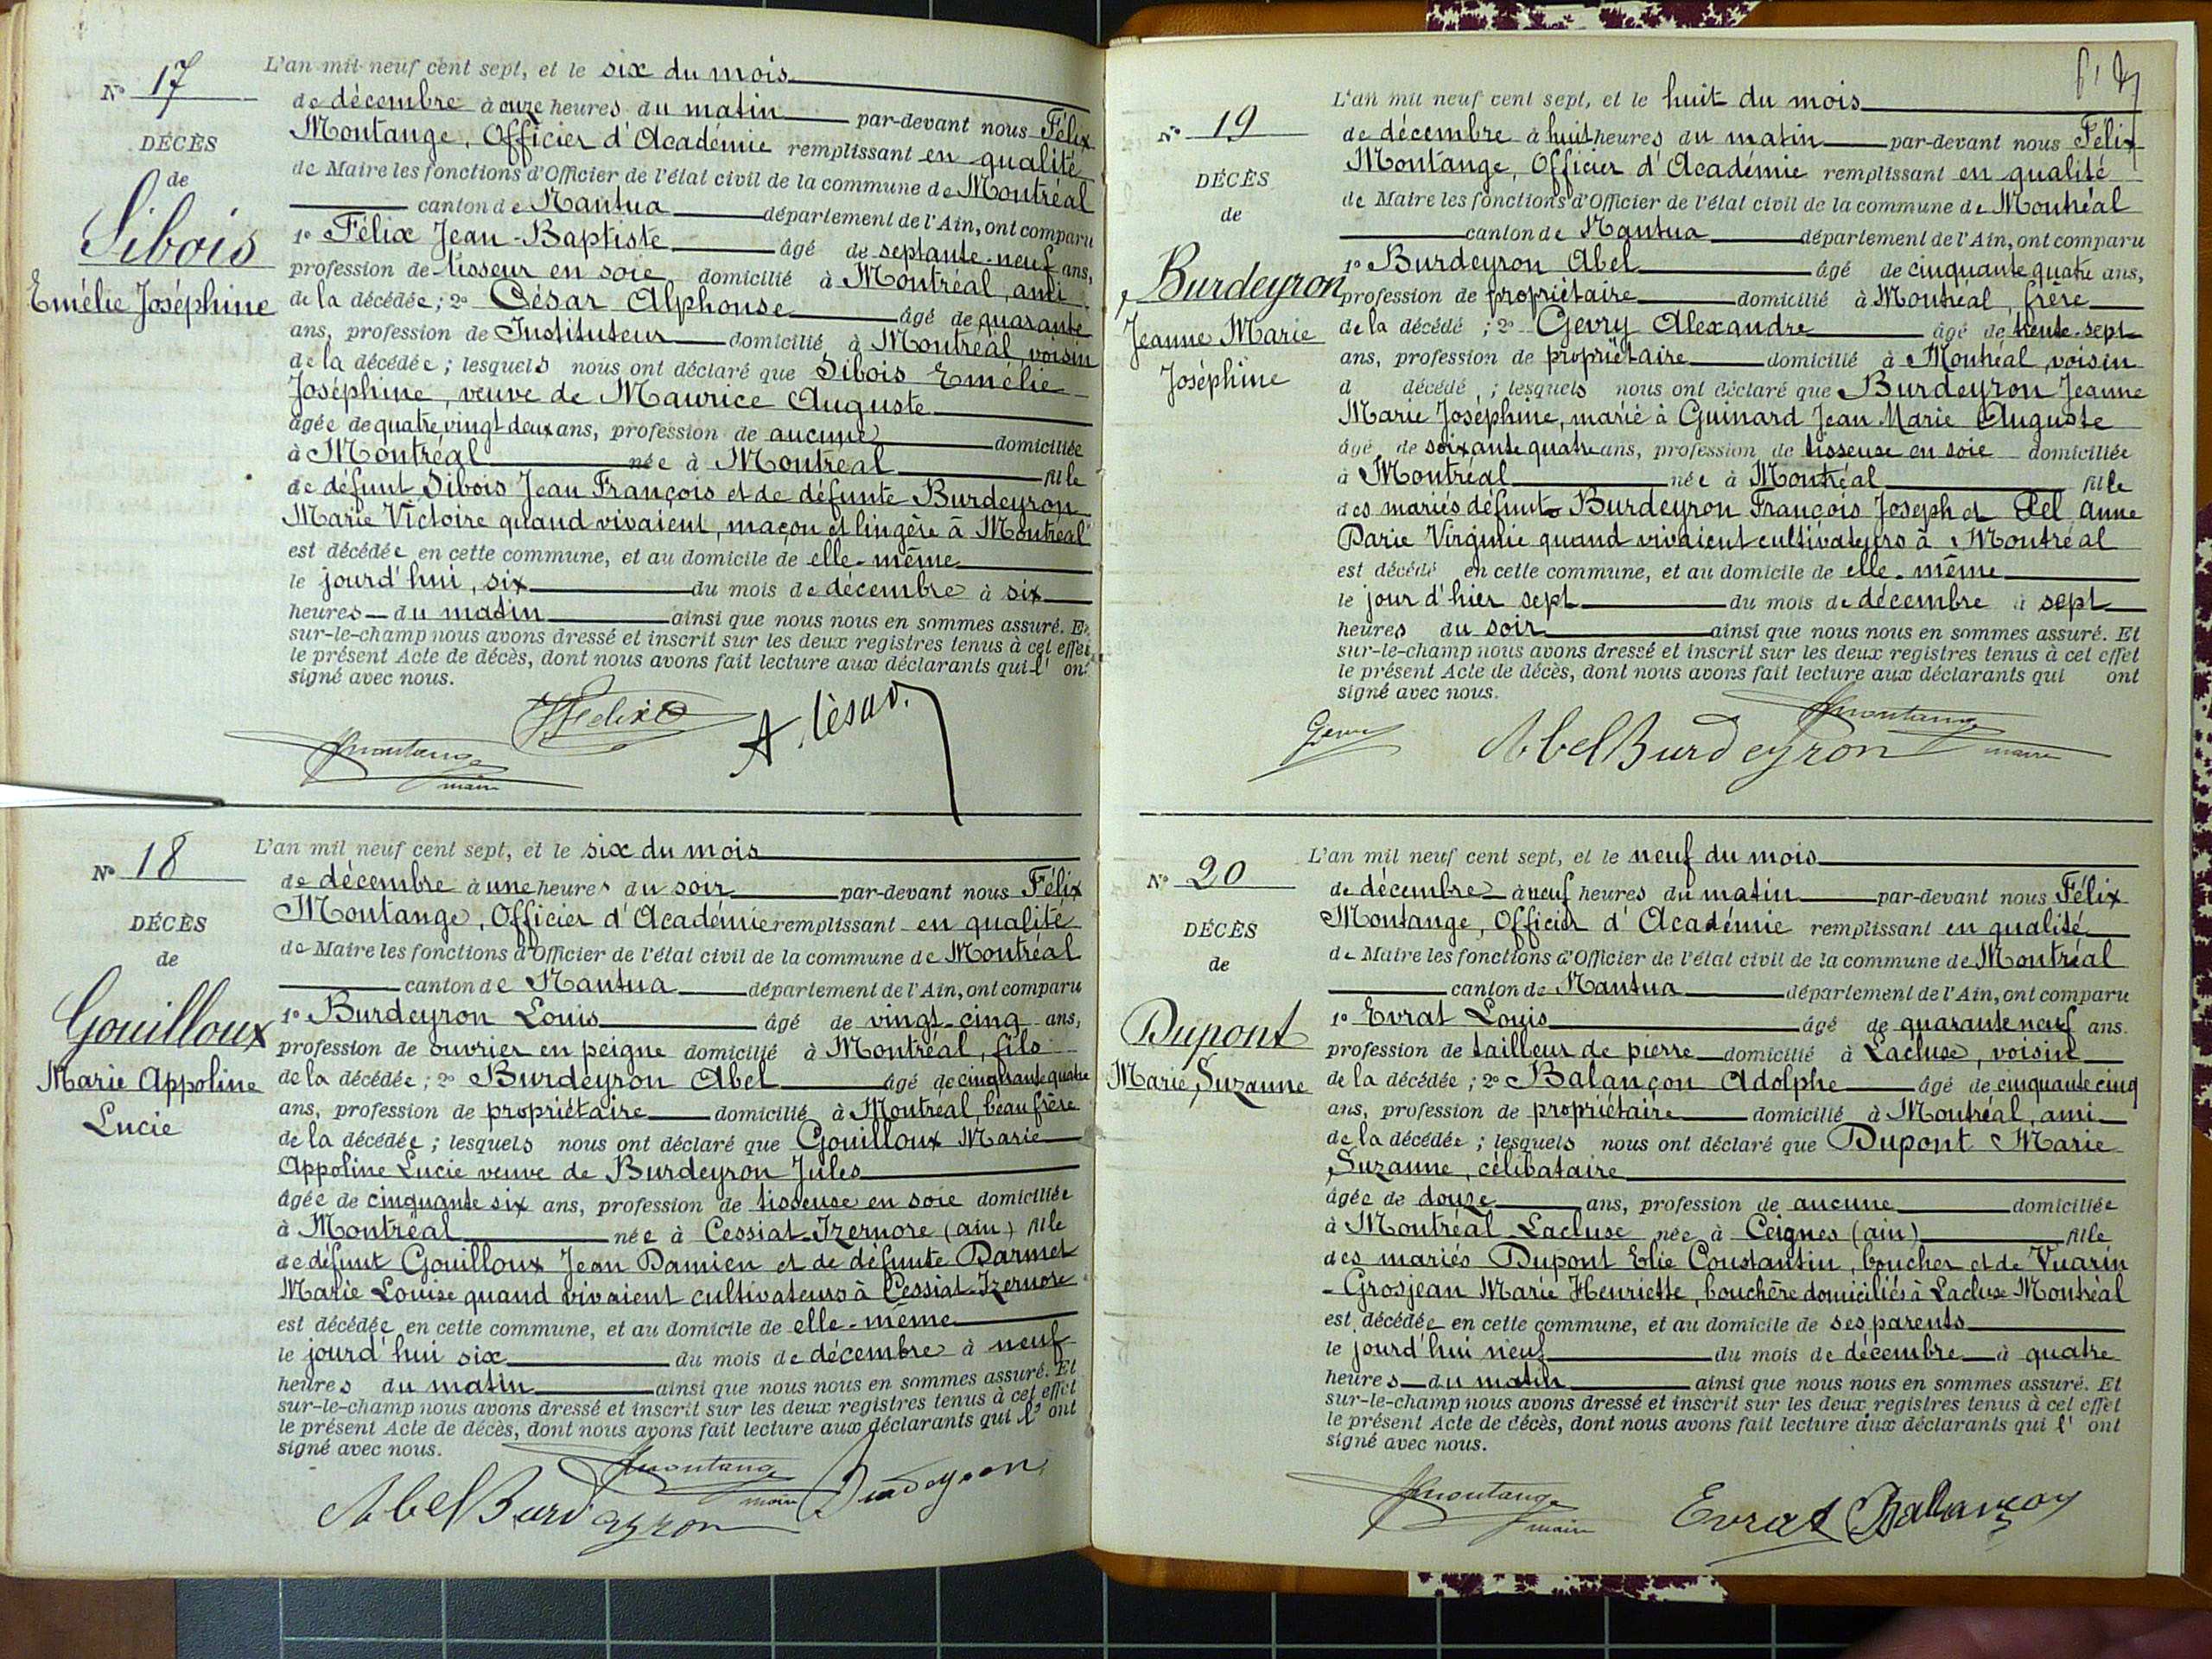 N° 17
DÉCÈS
de
Sibois
Emélie Joséphine
L'an mil neuf cent sept, et le six du mois
de décembre à onze heures du matin par-devant nous Félix
Montange, Officier d'Académie remplissant en qualité
de Maire les fonctions d'Officier de l'état civil de la commune de Montréal
canton de Nantua département de l'Ain, ont comparu
1° Félix Jean-Baptiste âgé de septante-neuf ans,
profession de tisseur en soie domicilié à Montréal, ami
de la décédée ; 2° César Alphonse âgé de quarante
ans, profession de Instituteur domicilié à Montréal, voisin
de la décédée ; lesquels nous ont déclaré que Sibois Emélie
Joséphine, veuve de Maurice Auguste
âgée de quatre vingt deux ans, profession de aucune domiciliée
à Montréal née à Montréal fille
de défunt Sibois Jean François et de défunte Burdeyron
Marie Victoire quand vivaient, maçon et lingère à Montréal
est décédée en cette commune, et au domicile de elle-même
le jourd'hui, six du mois de décembre à six
heures du matin ainsi que nous nous en sommes assuré. Et
sur-le-champ nous avons dressé et inscrit sur les deux registres tenus à cet effet
le présent Acte de décès, dont nous avons fait lecture aux déclarants qui l' ont
signé avec nous.
JFelix
A. César
Fmontange
maire
N° 18
DÉCÈS
de
Gouilloux
Marie Appoline
Lucie
L'an mil neuf cent sept, et le six du mois
de décembre à une heures du soir par-devant nous Félix
Montange, Officier d'Académie remplissant en qualité
de Maire les fonctions d'Officier de l'état civil de la commune de Montréal
canton de Nantua département de l'Ain, ont comparu
1° Burdeyron Louis âgé de vingt-cinq ans,
profession de ouvrier en peigne domicilié à Montréal, fils
de la décédée ; 2° Burdeyron Abel âgé de cinquante quatre
ans, profession de propriétaire domicilié à Montréal, beau frère
de la décédée ; lesquels nous ont déclaré que Gouilloux Marie
Appoline Lucie veuve de Burdeyron Jules
âgée de cinquante six ans, profession de tisseuse en soie domiciliée
à Montréal née à Cessiat-Izernore (ain) fille
de défunt Gouilloux Jean Damien et de défunte Darmet
Marie Louise quand vivaient cultivateurs à Cessiat-Izernore
est décédée en cette commune, et au domicile de elle-même
le jourd'hui six du mois de décembre à neuf
heures du matin ainsi que nous nous en sommes assuré. Et
sur-le-champ nous avons dressé et inscrit sur les deux registres tenus à cet effet
le présent Acte de décès, dont nous avons fait lecture aux déclarants qui l' ont
signé avec nous.
Fmontange
maire
Burdeyron
Abel Burdeyron
N° 19
DÉCÈS
de
Burdeyron
Jeanne Marie
Joséphine
L'an mil neuf cent sept, et le huit du mois
de décembre à huit heures du matin par-devant nous Félix
Montange, Officier d'Académie remplissant en qualité
de Maire les fonctions d'Officier de l'état civil de la commune de Montréal
canton de Nantua département de l'Ain, ont comparu
1° Burdeyron Abel âgé de cinquante quatre ans,
profession de propriétaire domicilié à Montréal, frère
de la décédé ; 2° Gevry Alexandre âgé de trente-sept
ans, profession de propriétaire domicilié à Montréal, voisin
d décédé ; lesquels nous ont déclaré que Burdeyron Jeanne
Marie Joséphine, marié à Guinard Jean Marie Auguste
âgé de soixante quatre ans, profession de tisseuse en soie domiciliée
à Montréal née à Montréal fille
des mariés défunts Burdeyron François Joseph et Pel Anne
Marie Virginie quand vivaient cultivateurs à Montréal
est décédé en cette commune, et au domicile de elle-même
le jour d'hier sept du mois de décembre à sept
heures du soir ainsi que nous nous en sommes assuré. Et
sur-le-champ nous avons dressé et inscrit sur les deux registres tenus à cet effet
le présent Acte de décès, dont nous avons fait lecture aux déclarants qui ont
signé avec nous.
Gevry
Abel Burdeyron
Fmontange
maire
N° 20
DÉCÈS
de
Dupont
Marie, Suzanne
L'an mil neuf cent sept, et le neuf du mois
de décembre à neuf heures du matin par-devant nous Félix
Montange, Officier d'Académie remplissant en qualité
de Maire les fonctions d'Officier de l'état civil de la commune de Montréal
canton de Nantua département de l'Ain, ont comparu
1° Evrat Louis âgé de quarante neuf ans.
profession de tailleur de pierre domicilié à Lacluse, voisin
de la décédée ; 2° Balançon Adolphe âgé de cinquante cinq
ans, profession de propriétaire domicilié à Montréal, ami
de la décédée ; lesquels nous ont déclaré que Dupont Marie
Suzanne, célibataire
âgée de douze ans, profession de aucune domiciliée
à Montréal-Lacluse née à Ceignes (ain) fille
des mariés Dupont Elie Constantin, boucher et de Vuarin
-Grosjean Marie Henriette, bouchère domiciliés à Lacluse Montréal
est décédée en cette commune, et au domicile de ses parents
le jourd'hui neuf du mois de décembre à quatre
heures du matin ainsi que nous nous en sommes assuré. Et
sur-le-champ nous avons dressé et inscrit sur les deux registres tenus à cet effet
le présent Acte de décès, dont nous avons fait lecture aux déclarants qui l' ont
signé avec nous.
Fmontange
maire
Evrat Balançon